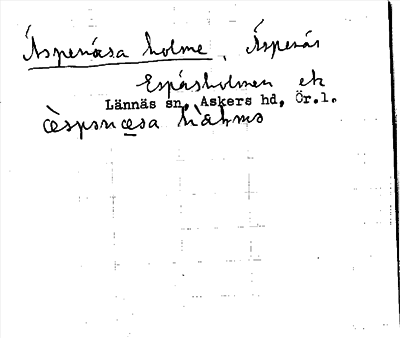 Äspenäsa holme, Äspenäs
Espåsholmen ek
Lännäs sn, Askers hd, Ör.l.
æ̀spsnæsa hɔ̀lms